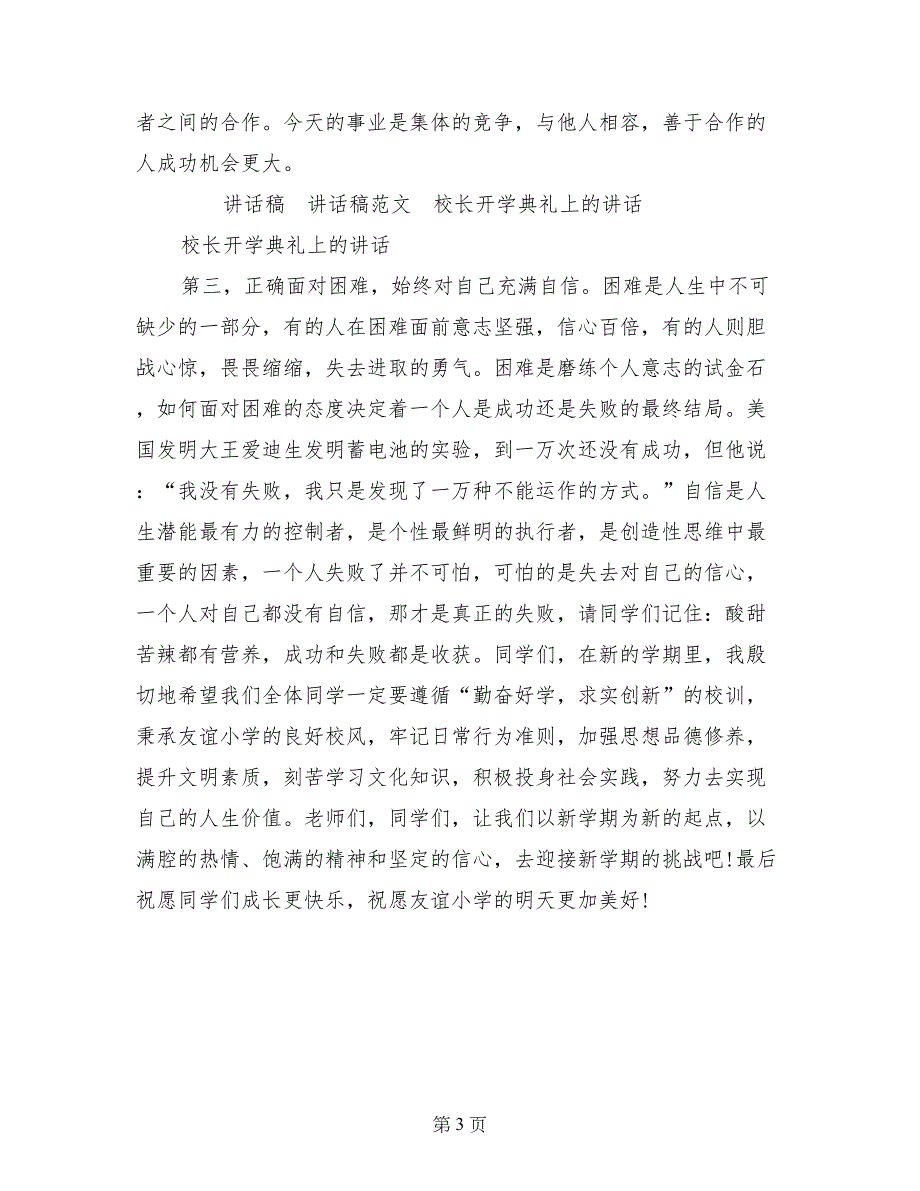 者之间的合作。今天的事业是集体的竞争，与他人相容，善于合作的
人成功机会更大。
讲话稿　讲话稿范文　校长开学典礼上的讲话
校长开学典礼上的讲话
第三，正确面对困难，始终对自己充满自信。困难是人生中不可
缺少的一部分，有的人在困难面前意志坚强，信心百倍，有的人则胆
战心惊，畏畏缩缩，失去进取的勇气。困难是磨练个人意志的试金石
，如何面对困难的态度决定着一个人是成功还是失败的最终结局。美
国发明大王爱迪生发明蓄电池的实验，到一万次还没有成功，但他说
：“我没有失败，我只是发现了一万种不能运作的方式。”自信是人
生潜能最有力的控制者，是个性最鲜明的执行者，是创造性思维中最
重要的因素，一个人失败了并不可怕，可怕的是失去对自己的信心，
一个人对自己都没有自信，那才是真正的失败，请同学们记住：酸甜
苦辣都有营养，成功和失败都是收获。同学们，在新的学期里，我殷
切地希望我们全体同学一定要遵循“勤奋好学，求实创新”的校训，
秉承友谊小学的良好校风，牢记日常行为准则，加强思想品德修养，
提升文明素质，刻苦学习文化知识，积极投身社会实践，努力去实现
自己的人生价值。老师们，同学们，让我们以新学期为新的起点，以
满腔的热情、饱满的精神和坚定的信心，去迎接新学期的挑战吧!最后
祝愿同学们成长更快乐，祝愿友谊小学的明天更加美好!
第 3 页